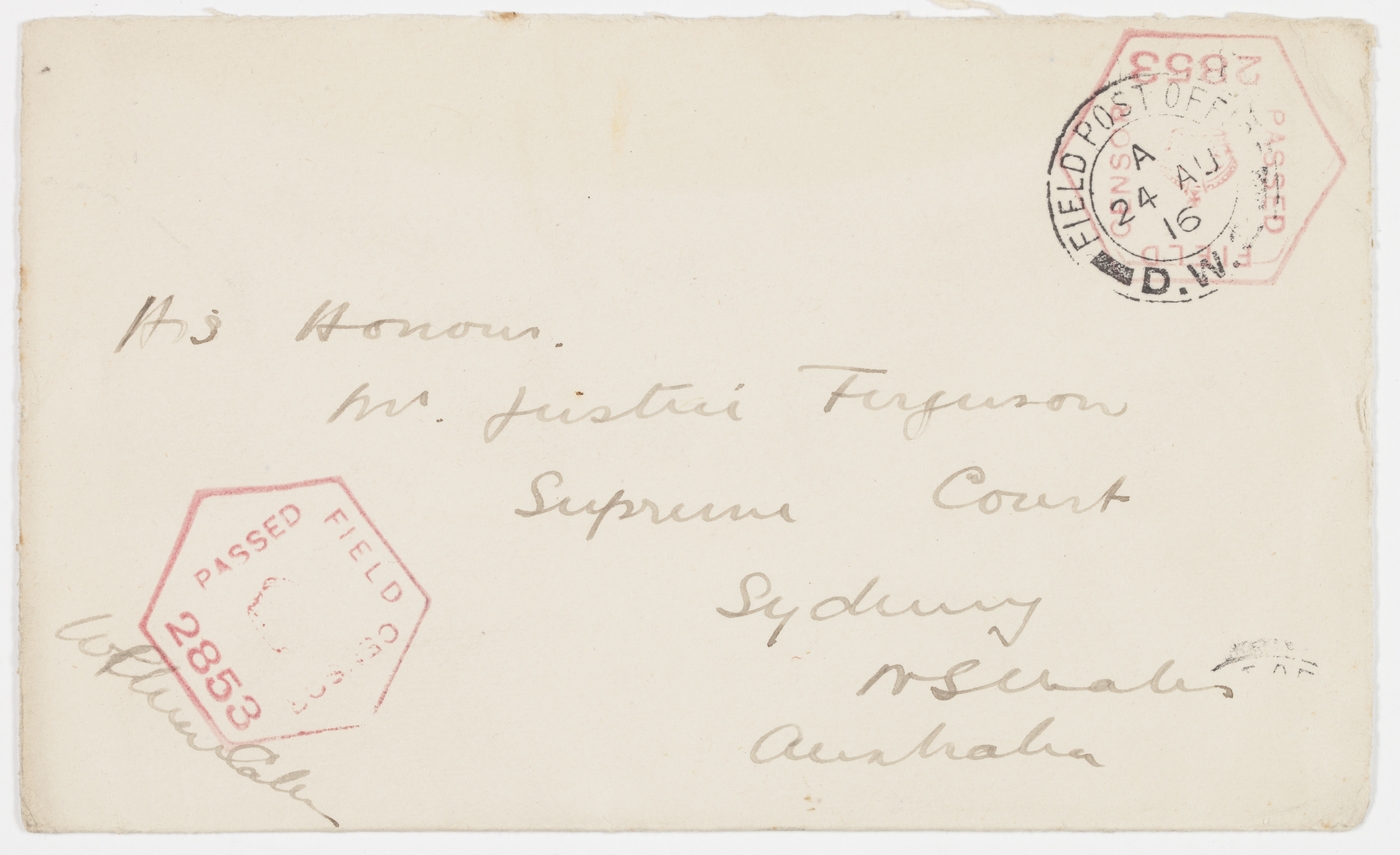 2853
PASSED
FIELD
CENSOR
FIELD POST OFFICE
A
24 AU
16
D.W.
His Honour.
Mr. Justice Ferguson
Supreme Court
Sydney
N S Wales
Australia
PASSED
FIELD
CENSOR
2853